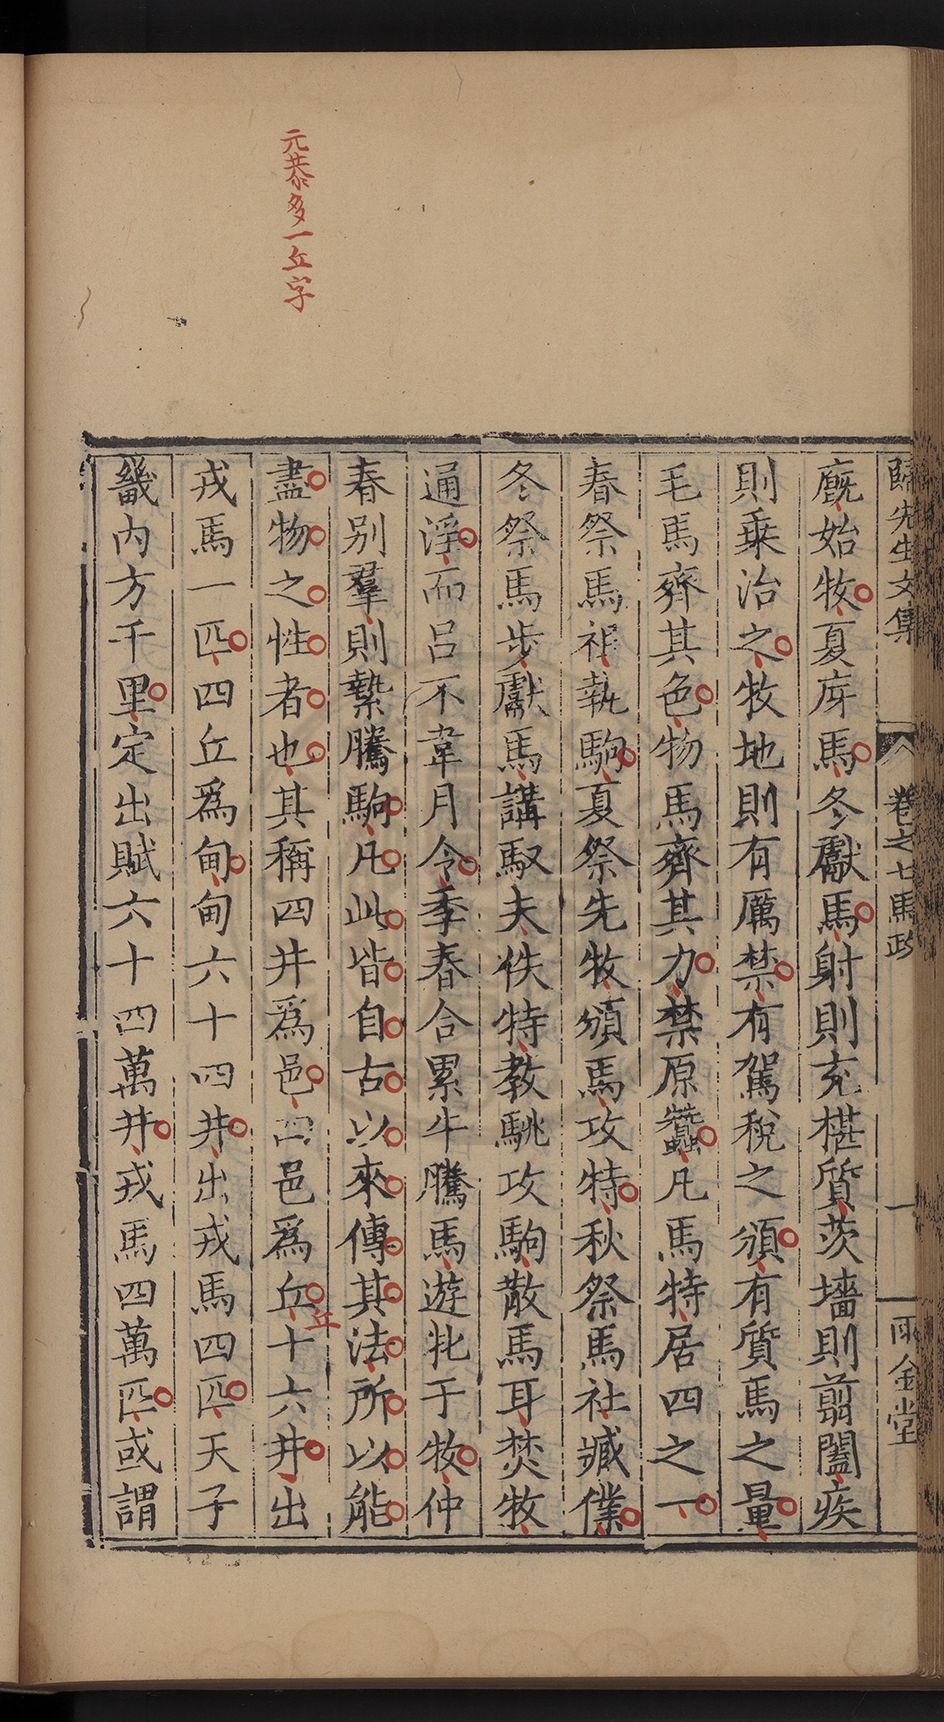 元恭多一丘字
歸先生文集 卷之七馬政 一 雨金堂
廐始牧夏庌馬冬獻馬射則充椹質茨墻則翦闔疾
則乗治之牧地則有厲禁有駕稅之頒有質馬之量
毛馬齊其色物馬齊其力禁原蠶凡馬特居四之一
春祭馬祖執駒夏祭先牧頒馬攻特秋祭馬社臧僕
冬祭馬步獻馬講馭夫佚特教駣攻駒散馬耳焚牧
通淫而呂不韋月令季春合累牛騰馬遊牝于牧仲
春别羣則縶騰駒凡此皆自古以來傳其法所以能
盡物之性者也其稱四井爲邑四邑爲丘十六井出
丘
戎馬一匹四丘爲甸甸六十四井出戎馬四匹天子
畿内方千里定出賦六十四萬井戎馬四萬匹或謂